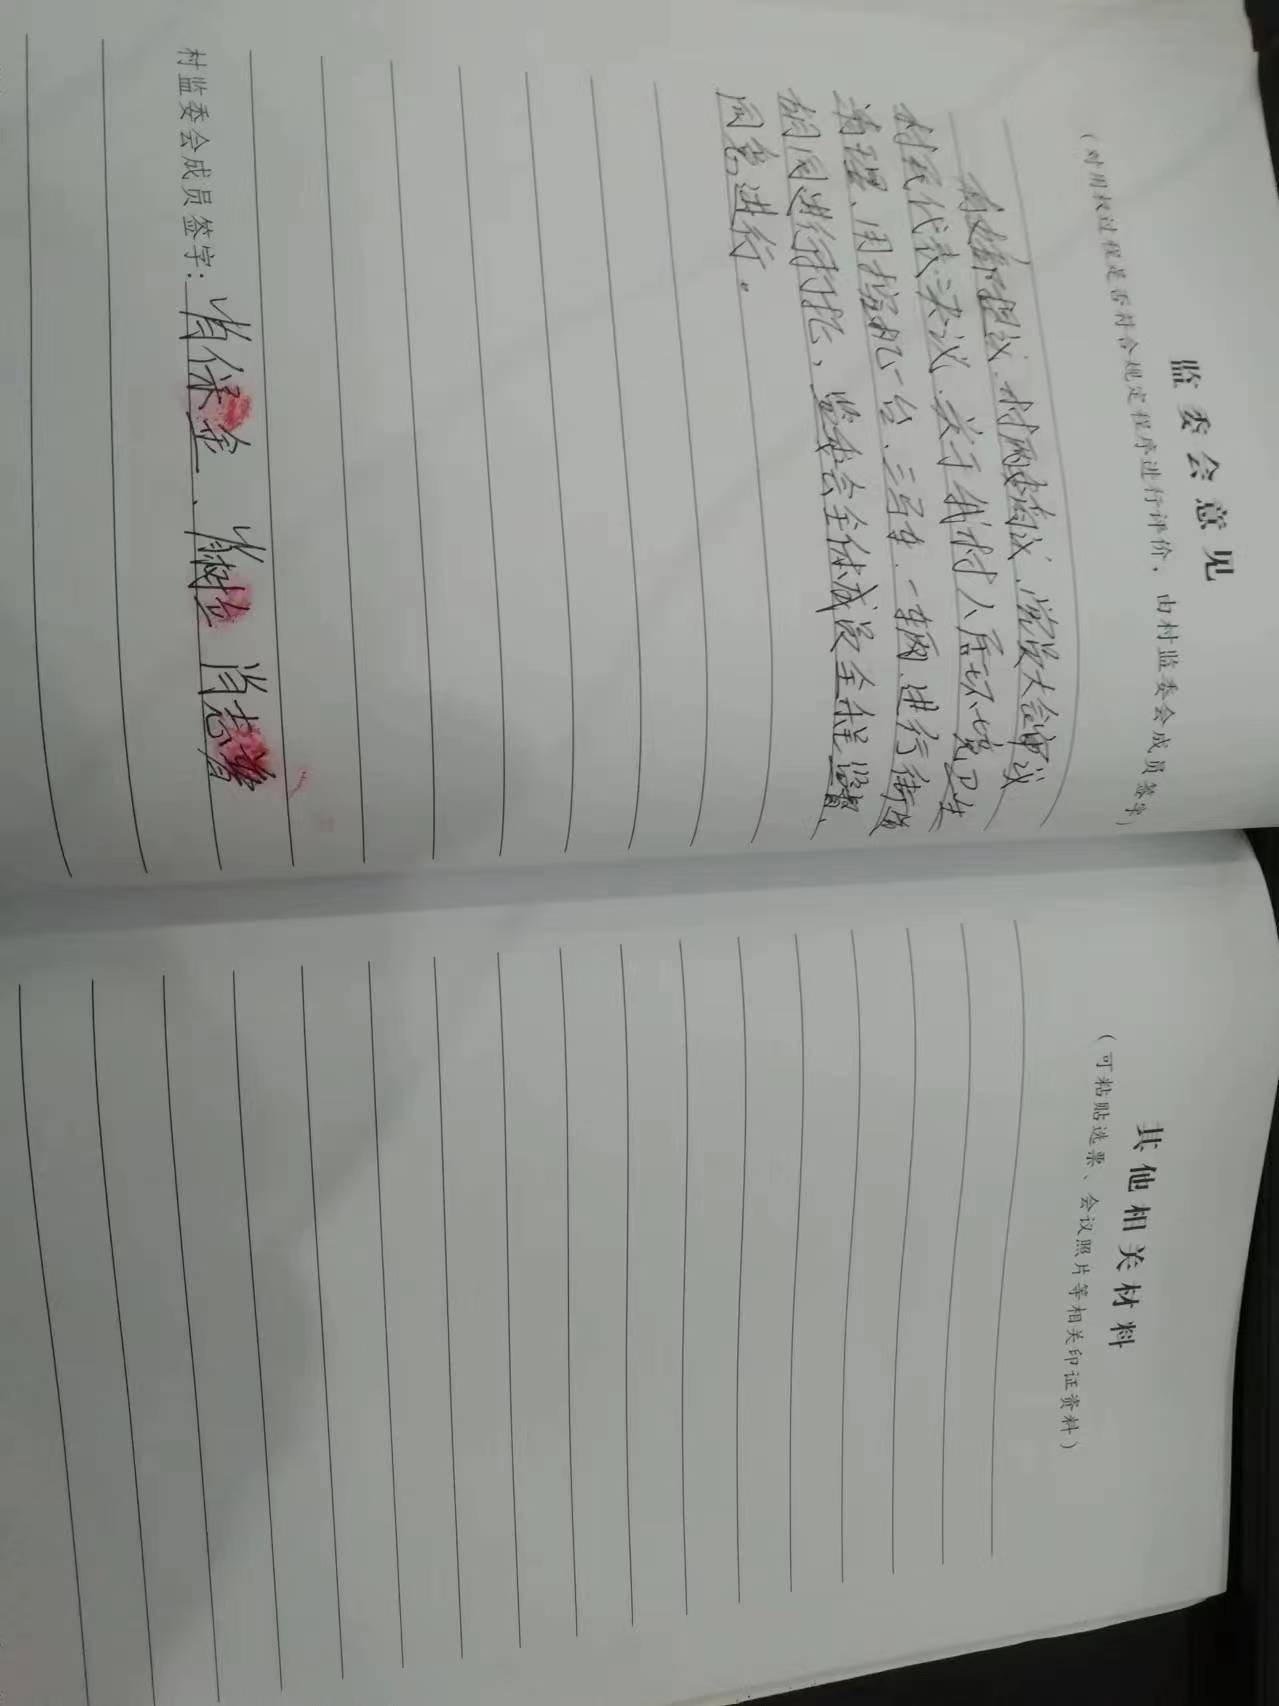 监委会意见
（对用权过程是否符合规定程序进行评价，由村监委会成员签字）
由支部提议、村两委商议、党员大会审议
村民代表决议、关于我村人居环境卫生
清理、用挖机一台、三马车一辆、进行街道
胡同进行打扫，监委会全体成员全程监督、
同意进行。
村监委会成员签字：肖保金、肖树
其他相关材料
（可粘贴选票、会议照片等相关印证资料）